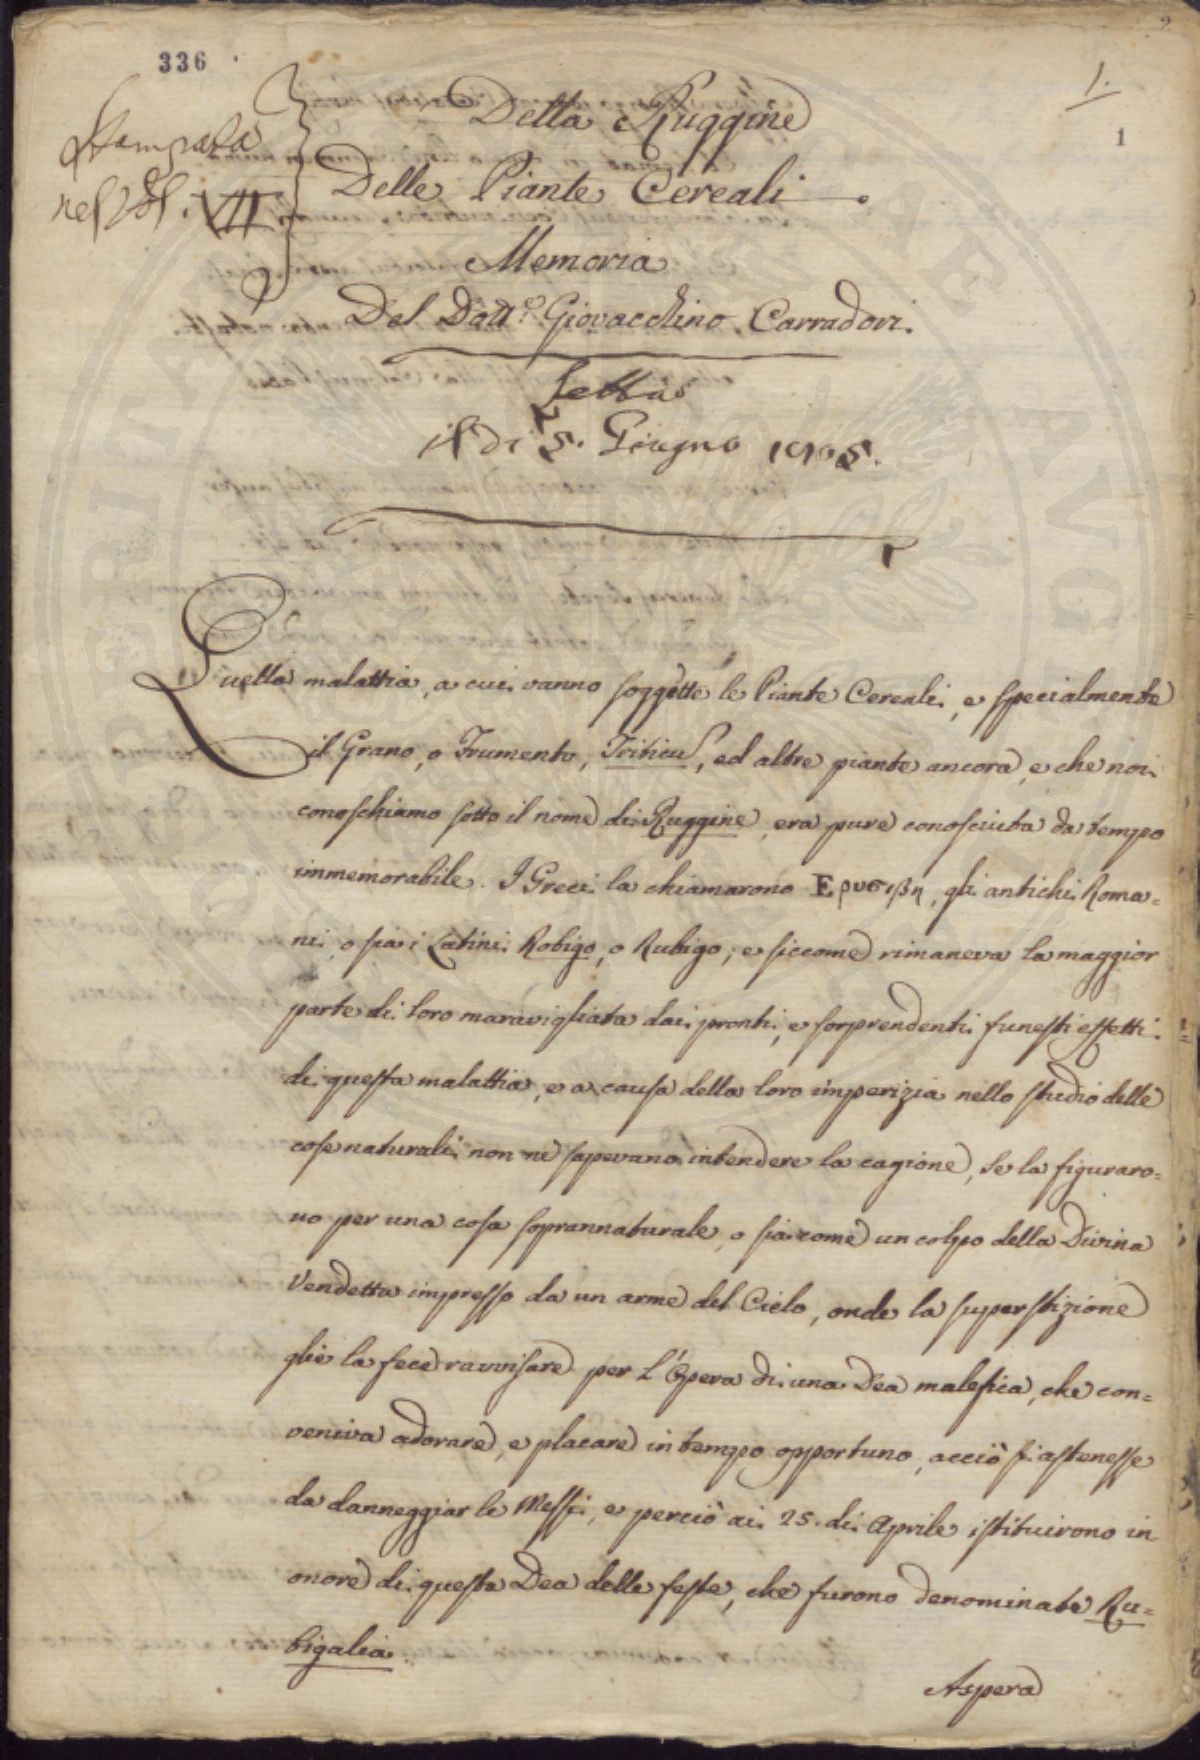 336
1.
1
Stampata
nel Vol. VII
Della Ruggine
Delle Piante Cereali.
Memoria
Del Dott.e Giovacchino Carradori.
Letta
il dì 5. Giugno
Quella malattia, a cui vanno soggette le Piante Cereali, e specialmente
il Grano, o Frumento, Triticu, ed altre piante ancora, e che noi
conoschiamo sotto il nome di Ruggine, era pure conosciuta da tempo
immemorabile. I Greci la chiamarono Ερυσιβη, gli antichi Roma=
ni, o sia i Latini Robigo, o Rubigo; e siccome rimaneva la maggior
parte di loro maravigliata dai pronti, e sorprendenti funesti effetti
di questa malattia, e a causa della loro imperizia nello studio delle
cose naturali non ne sapevano intendere la cagione, se la figuraro=
no per una cosa soprannaturale, o sia come un colpo della Divina
Vendetta impresso da un arme del Cielo, onde la superstizione
glie la fece ravvisare per l'Opera di una Dea malefica, che con=
veniva adorare, e placare in tempo opportuno, acciò si astenesse
da danneggiar le Messi, e perciò ai 25. di Aprile istituirono in
onore di questa Dea delle feste, che furono denominate Ru=
bigalia.
Aspera
VERITAS AVGE